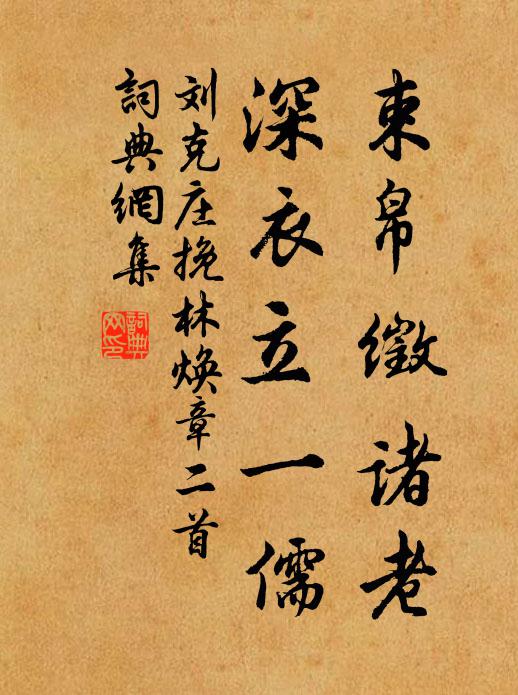 束帛徵諸老
深衣立一儒
刘克庄挽林焕章二首
詞典網集
詞典網印